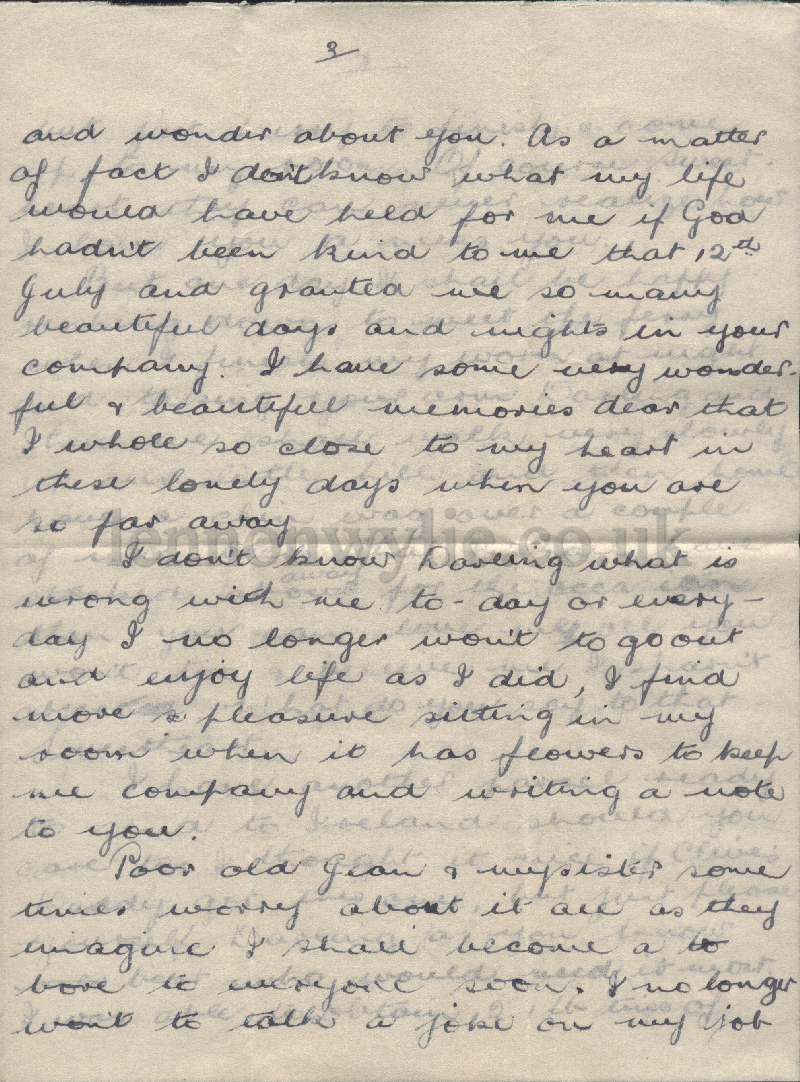 3
and wonder about you. As a matter
of fact I don't know what my life
would have held for me if God
hadn't been kind to me that 12th
July and granted me so many
beautiful days and nights in your
company. I have some very wonder-
ful & beautiful memories dear that
I whole so close to my heart in
these lonely days when you are
so far away
lennonwylie.co.uk
I don't know Darling what is
wrong with me to-day or every-
day I no longer won't to go out
and enjoy life as I did, I find
more pleasure sitting in my
room when it has flowers to keep
me company and writing a note
to you.
Poor old Gean & my sister some
times worry about it all as they
imagine I shall become a to
bore to everyone soon. I no longer
won't to talk a joke on my job